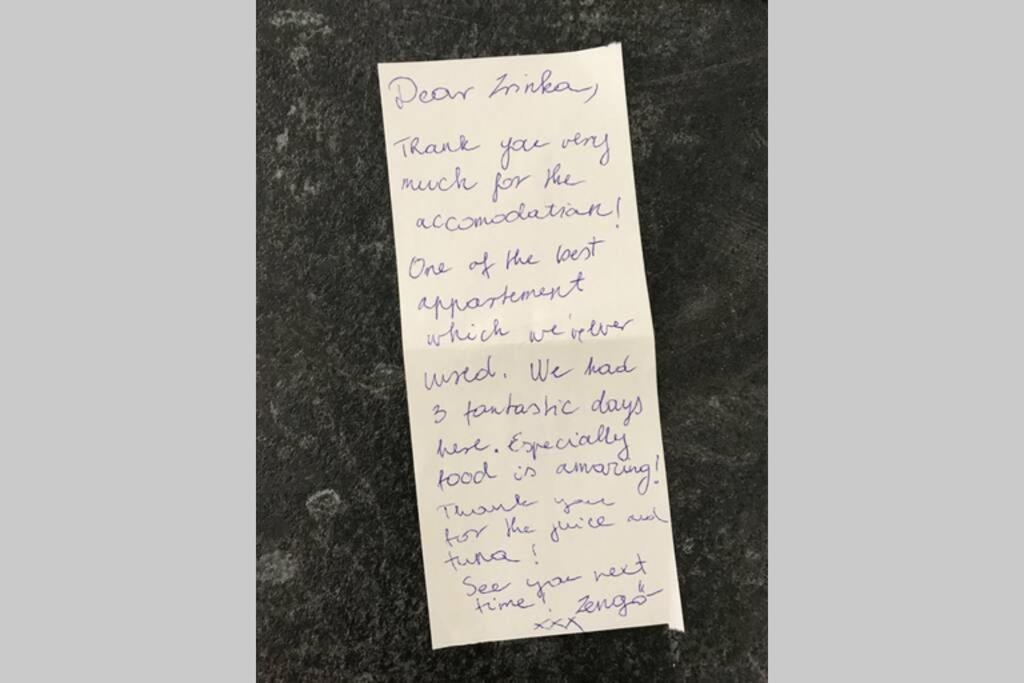 Dear Zrinka,
Thank you very
much for the
accomodation!
One of the best
appartement
which we've ever
used. We had
3 fantastic days
here. Especially
food is amazing!
Thank you
for the juice and
tuna!
See you next
time! Zengő
xxx